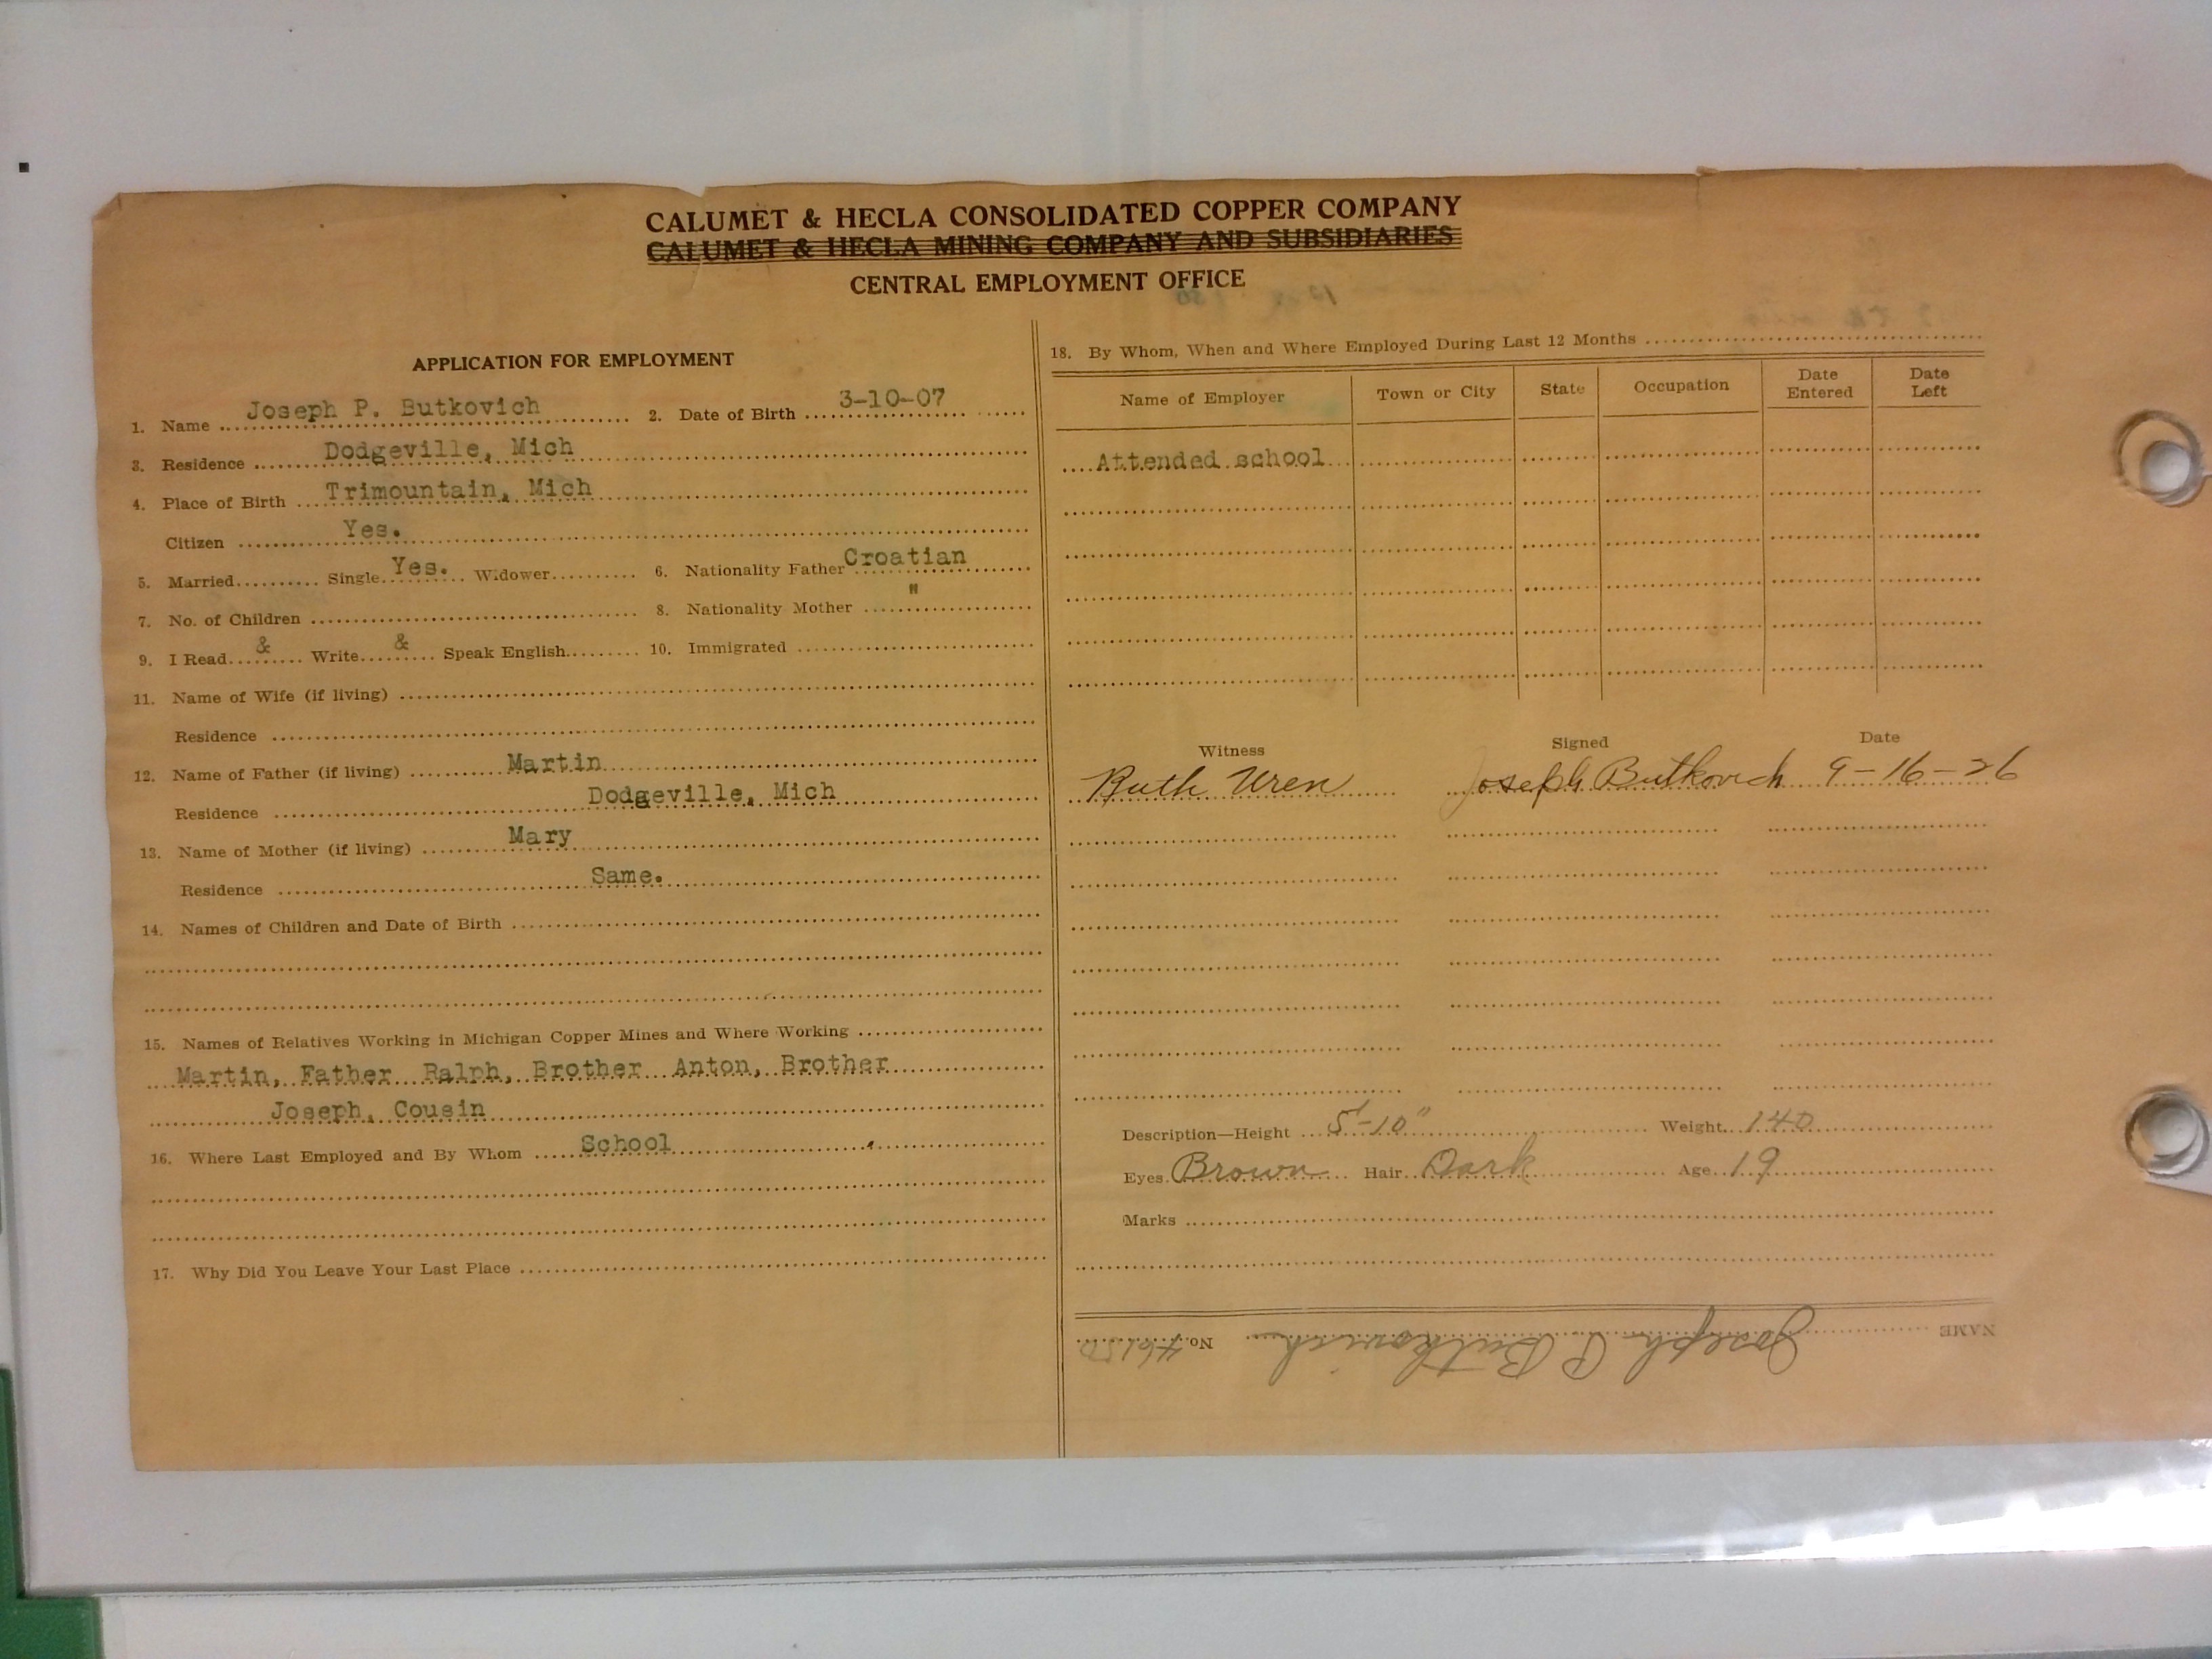 CALUMET & HECLA CONSOLIDATED COPPER COMPANY
CALUMET & HECLA MINING COMPANY AND SUBSIDIARIES
CENTRAL EMPLOYMENT OFFICE
APPLICATION FOR EMPLOYMENT
1. Name Joseph P. Butkovich 2. Date of Birth 3-10-07
3. Residence Dodgeville, Mich
4. Place of Birth Trimountain, Mich
Citizen Yes.
5. Married Single Yes. Widower 6. Nationality Father Croatian
7. No. of Children 8. Nationality Mother "
9. I Read & Write & Speak English 10. Immigrated
11. Name of Wife (if living)
Residence
12. Name of Father (if living) Martin
Residence Dodgeville, Mich
13. Name of Mother (if living) Mary
Residence Same.
14. Names of Children and Date of Birth
15. Names of Relatives Working in Michigan Copper Mines and Where Working
Martin, Father Ralph, Brother Anton, Brother
Joseph, Cousin
16. Where Last Employed and By Whom School
17. Why Did You Leave Your Last Place
18. By Whom, When and Where Employed During Last 12 Months
Name of Employer Town or City State Occupation Date Entered Date Left
Attended school
Witness Signed Date
Ruth Uren Joseph Butkovich 9-16-26
Description—Height 5'-10" Weight 140
Eyes Brown Hair Dark Age 19
Marks
NAME Joseph P Butkovich No. 46150